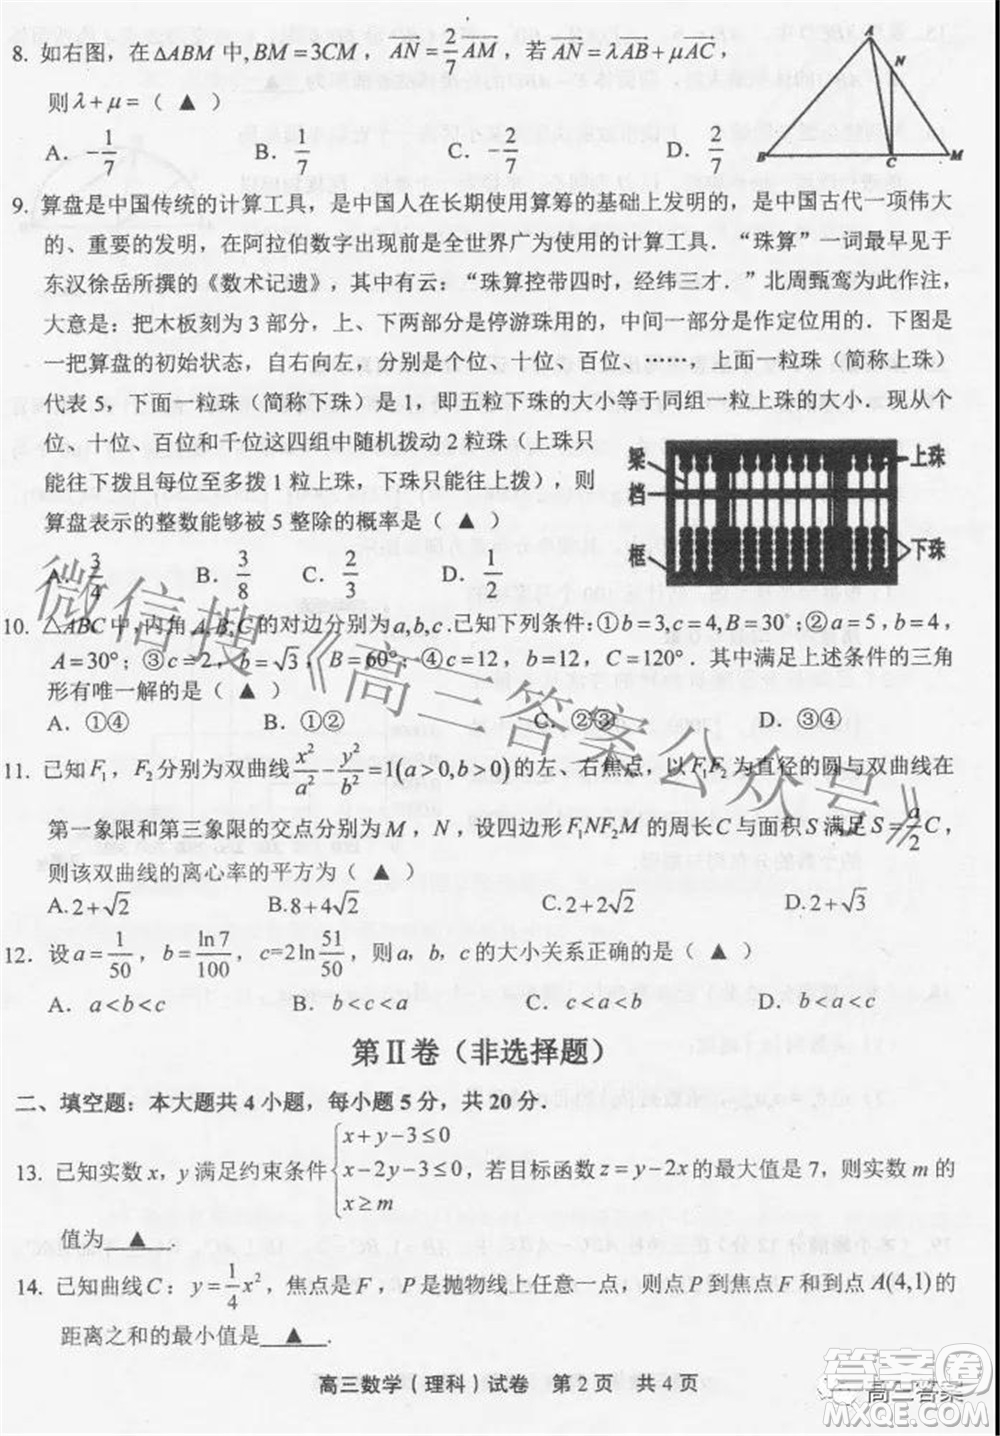 8. 如右图，在△ABM 中，BM=3CM，AN=2/7 AM，若 AN=λAB+μAC，
则 λ+μ=（ ▲ ）
A. -1/7 B. 1/7 C. -2/7 D. 2/7
A N B C M
9. 算盘是中国传统的计算工具，是中国人在长期使用算筹的基础上发明的，是中国古代一项伟大
的、重要的发明，在阿拉伯数字出现前是全世界广为使用的计算工具．“珠算”一词最早见于
东汉徐岳所撰的《数术记遗》，其中有云：“珠算控带四时，经纬三才．”北周甄鸾为此作注，
大意是：把木板刻为 3 部分，上、下两部分是停游珠用的，中间一部分是作定位用的．下图是
一把算盘的初始状态，自右向左，分别是个位、十位、百位、……，上面一粒珠（简称上珠）
代表 5，下面一粒珠（简称下珠）是 1，即五粒下珠的大小等于同组一粒上珠的大小．现从个
位、十位、百位和千位这四组中随机拨动 2 粒珠（上珠只
能往下拨且每位至多拨 1 粒上珠，下珠只能往上拨），则
算盘表示的整数能够被 5 整除的概率是（ ▲ ）
梁 档 框 上珠 下珠
A. 3/4 B. 3/8 C. 1/3 D. 1/2
10. △ABC 中，内角 A,B,C 的对边分别为 a,b,c．已知下列条件：①b=3,c=4,B=30°；②a=5，b=4，
A=30°；③c=2，b=√3，B=60°；④c=12，b=12，C=120°．其中满足上述条件的三角
形有唯一解的是（ ▲ ）
A. ①④ B. ①② C. ②③ D. ③④
11. 已知 F₁，F₂分别为双曲线 x²/a² - y²/b² =1(a>0,b>0)的左、右焦点，以 F₁F₂为直径的圆与双曲线在
第一象限和第三象限的交点分别为 M，N，设四边形 F₁NF₂M 的周长 C 与面积 S 满足 S=a/2 C，
则该双曲线的离心率的平方为（ ▲ ）
A.2+√2 B.8+4√2 C.2+2√2 D.2+√3
12. 设 a=1/50，b=ln7/100，c=2ln51/50，则 a，b，c 的大小关系正确的是（ ▲ ）
A. a<b<c B. b<c<a C. c<a<b D. b<a<c
第Ⅱ卷（非选择题）
二、填空题：本大题共 4 小题，每小题 5 分，共 20 分．
13. 已知实数 x，y 满足约束条件 { x+y-3≤0 x-2y-3≤0 x≥m，若目标函数 z=y-2x 的最大值是 7，则实数 m 的
值为 ▲ .
14. 已知曲线 C：y=1/4 x²，焦点是 F，P 是抛物线上任意一点，则点 P 到焦点 F 和到点 A(4,1)的
距离之和的最小值是 ▲ .
高三数学（理科）试卷 第 2 页 共 4 页
微信搜《高三答案公众号》
高三答案
MXQE.COM